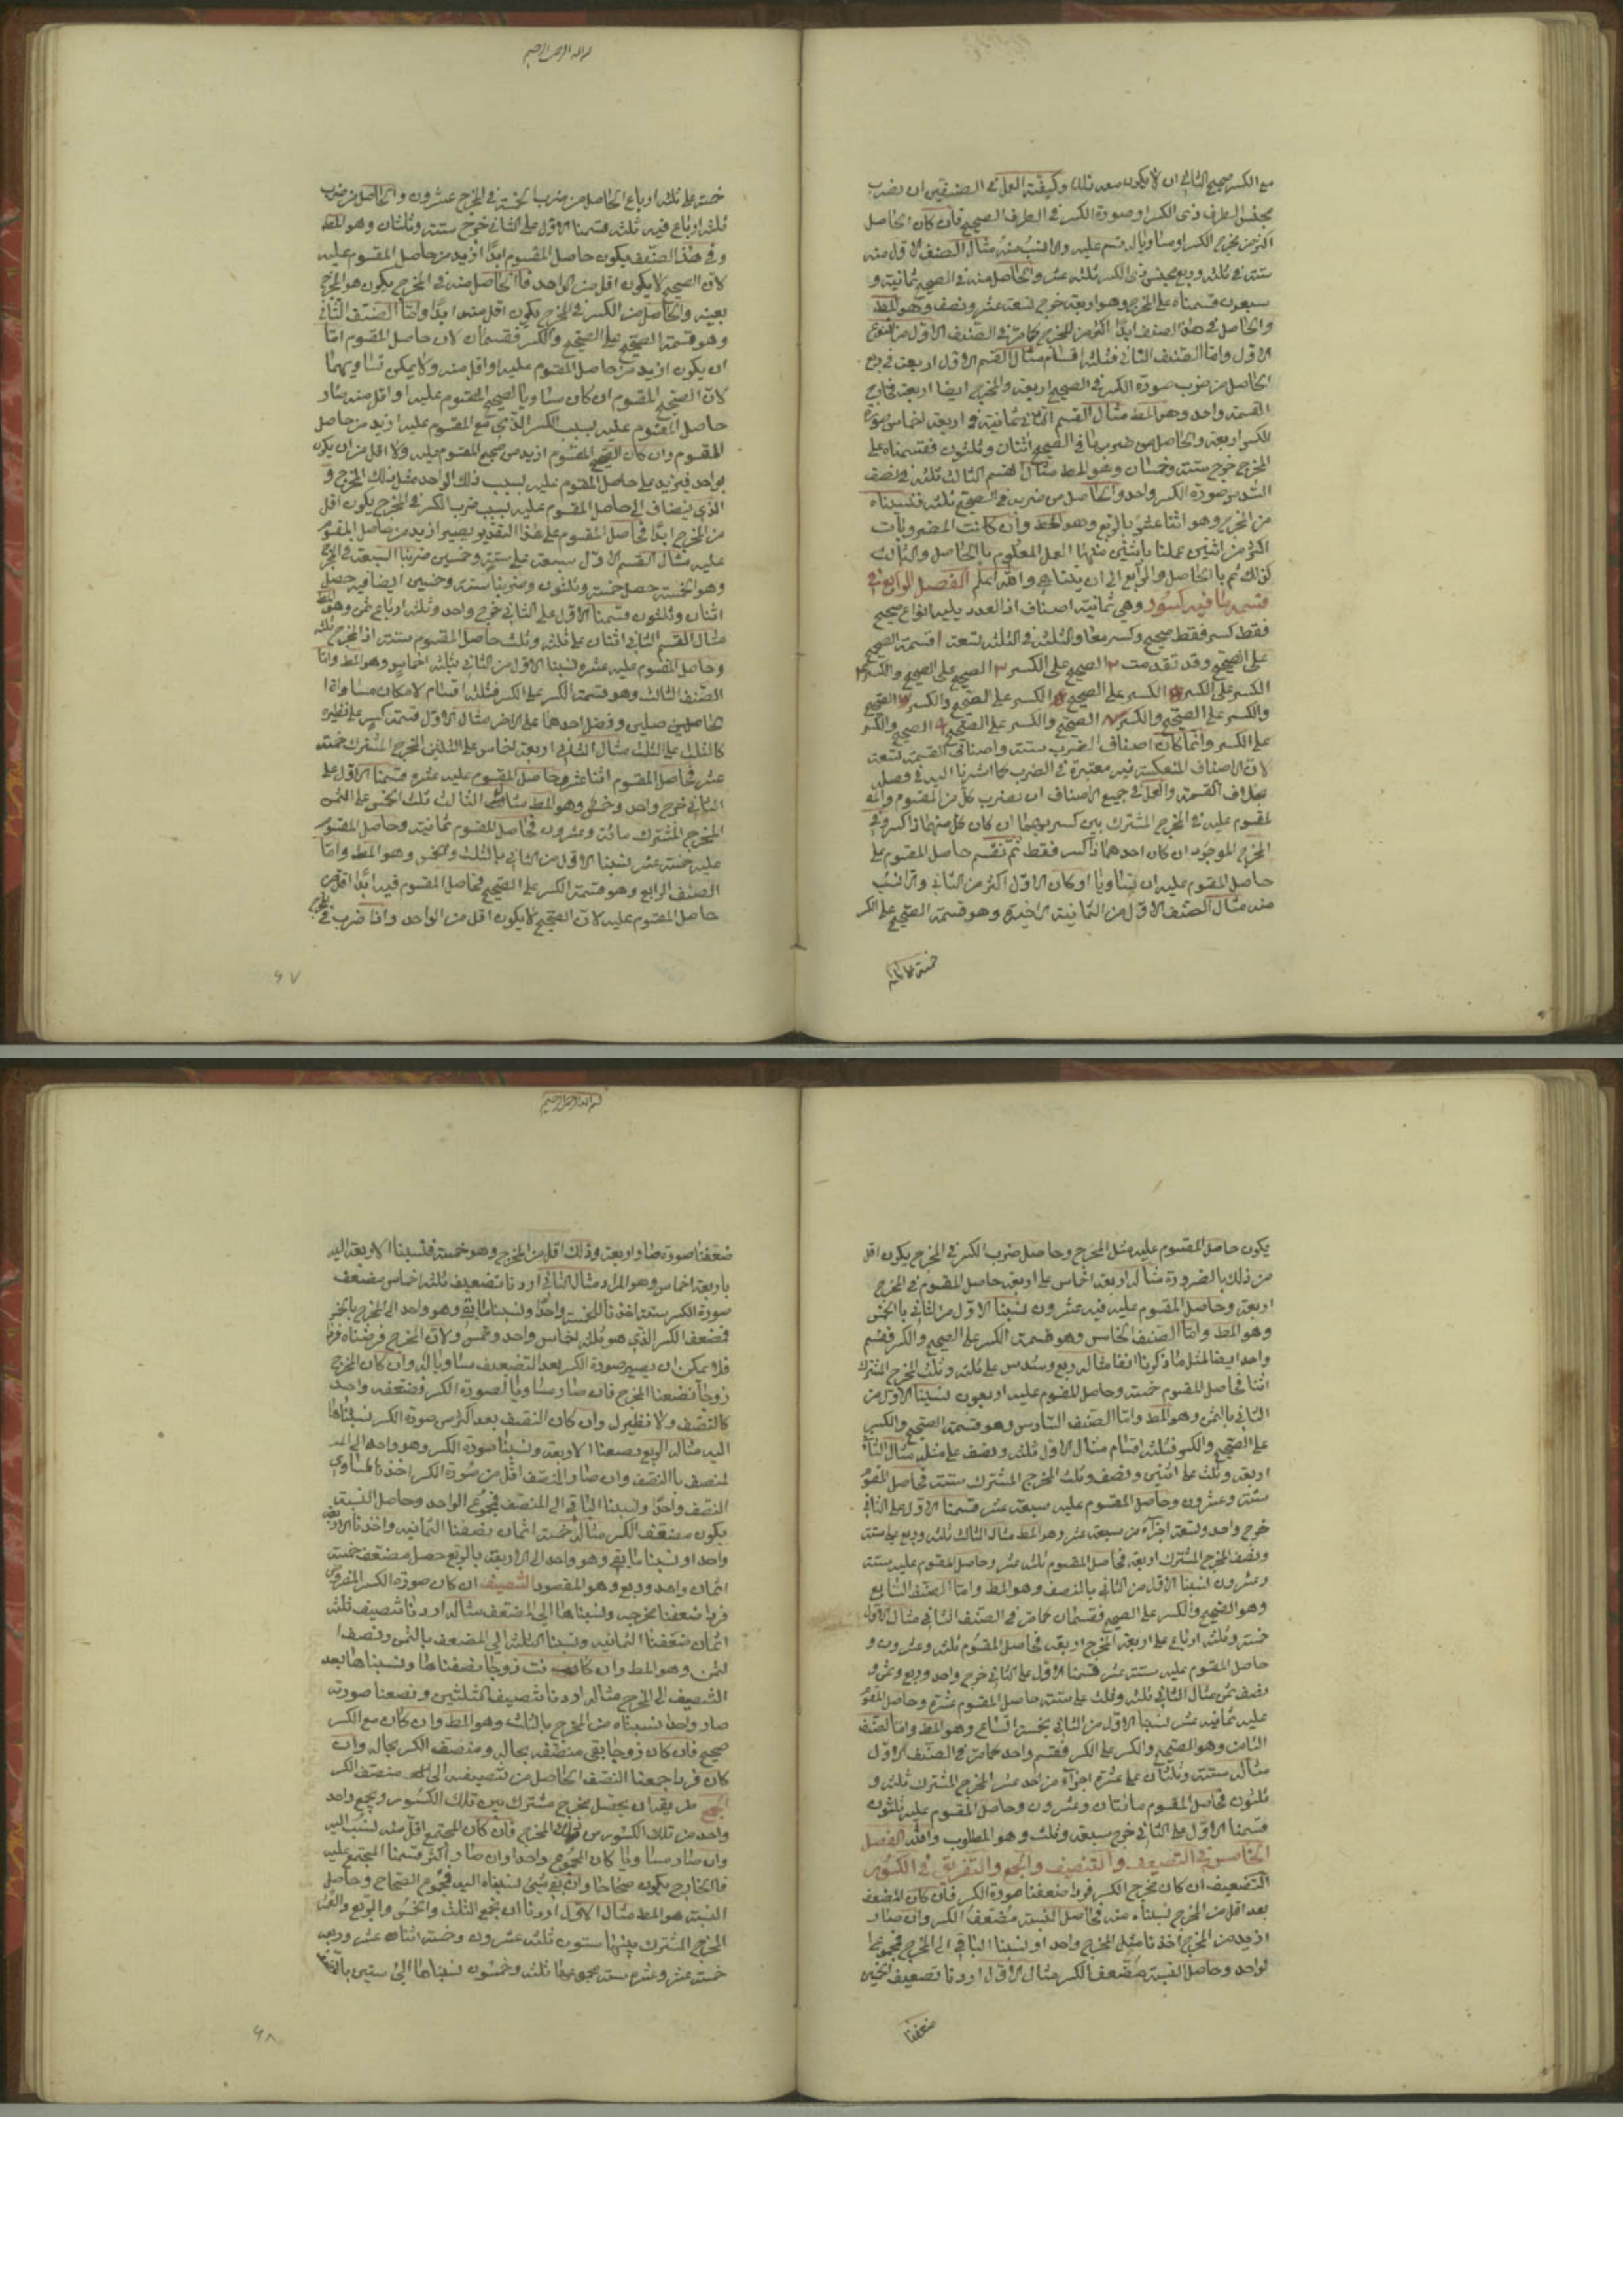 مع الكسر صحيح الثاني ان لا يكون معه ذلك وكيفية العمل في الصنفين ان تضرب
مجنس الطرف ذي الكسر او صورة الكسر في الطرف الصحيح فان كان الحاصل
اكثر من مخرج الكسر او مساويا له قسم عليه والا نسب منه مثال الصنف الاول منه
ستة في ثلثة وربع مجنس ذي الكسر ثلثة عشر والحاصل منه في الصحيح ثمانية و
سبعون قسمناه على المخرج وهو اربعة خرج تسعة عشر ونصف وهو المط
والحاصل في هذا الصنف ابدا اكثر من المخرج كما مر في الصنف الاول من النوع
الاول واما الصنف الثاني فثلثة اقسام مثال القسم الاول اربعة في ربع
الحاصل من ضرب صورة الكسر في الصحيح اربعة والمخرج ايضا اربعة فخارج
القسمة واحد وهو المط مثال القسم الثاني ثمانية في اربعة اخماس صورة
الكسر اربعة والحاصل من ضربها في الصحيح اثنان وثلثون فقسمناه على
المخرج خرج ستة وخمسان وهو المط مثال القسم الثالث ثلثة في نصف
السدس صورة الكسر واحد والحاصل من ضربه في الصحيح ثلثة فنسبناه
من المخرج وهو اثنا عشر بالربع وهو المط وان كانت المضروبات
اكثر من اثنين عملنا باثنين منها العمل المعلوم بالحاصل والثالث
كذلك ثم بالحاصل والرابع الى ان يتناهى والله اعلم الفصل الرابع في
قسمة ما فيه كسور وهي ثمانية اصناف اذ العدد يليه انواع صحيح
فقط كسر فقط صحيح وكسر معا والثلثة في الثلثة تسعة ا قسمة الصحيح
على الصحيح وقد تقدمت ٢ الصحيح على الكسر ٣ الصحيح على الصحيح والكسر
الكسر على الكسر الكسر على الصحيح الكسر على الصحيح والكسر الصحيح
والكسر على الصحيح والكسر الصحيح والكسر على الصحيح الصحيح والكسر
على الكسر وانما كان اصناف الضرب ستة واصناف القسمة تسعة
لان الاصناف المنعكسة غير معتبرة في الضرب كما اشرنا اليه في فصل
بخلاف القسمة والعمل في جميع الاصناف ان تضرب كل من المقسوم وا
لمقسوم عليه في المخرج المشترك بين كسريهما ان كان كل منهما ذا كسر وفي
المخرج الموجود ان كان احدهما ذا كسر فقط ثم تقسم حاصل المقسوم على
حاصل المقسوم عليه ان تساويا او كان الاول اكثر من الثاني والا نسب
منه مثال الصنف الاول من الثمانية الاخيرة وهو قسمة الصحيح على الكسر
خمسة على ثلثة
بسم الله الرحمن الرحيم
خمسة على ثلثة ارباع الحاصل من ضرب الخمسة في المخرج عشرون والحاصل من ضرب
ثلثة ارباع فيه ثلثة قسمنا الاول على الثاني خرج ستة وثلثان وهو المط
وفي هذا الصنف يكون حاصل المقسوم ابدا ازيد من حاصل المقسوم عليه
لان الصحيح لا يكون اقل من الواحد فالحاصل منه في المخرج يكون هو المخرج
بعينه والحاصل من الكسر في المخرج يكون اقل منه ابدا واما الصنف الثاني
وهو قسمة الصحيح على الصحيح والكسر فقسمان لان حاصل المقسوم اما
ان يكون ازيد من حاصل المقسوم عليه او اقل منه ولا يمكن تساويهما
لان الصحيح المقسوم ان كان مساويا لصحيح المقسوم عليه او اقل منه صار
حاصل المقسوم عليه بسبب الكسر الذي مع المقسوم عليه ازيد من حاصل
المقسوم وان كان الصحيح المقسوم ازيد من صحيح المقسوم عليه ولا اقل من ان يكون
بواحد فيزيد على حاصل المقسوم عليه بسبب ذلك الواحد مثل ذلك المخرج و
الذي ينضاف الى حاصل المقسوم عليه بسبب ضرب الكسر في المخرج يكون اقل
من المخرج ابدا فحاصل المقسوم على هذا التقدير يصير ازيد من حاصل المقسوم
عليه مثال القسم الاول سبعة على ستة وخمسين ضربنا السبعة في المخرج
وهو الخمسة حصل خمسة وثلثون وضربنا ستة وخمسين ايضا فيه حصل
اثنان وثلثون قسمنا الاول على الثاني خرج واحد وثلثة ارباع ثمن وهو المط
مثال القسم الثاني اثنان على ثلثة وثلث حاصل المقسوم ستة اذ المخرج ثلثة
وحاصل المقسوم عليه عشرة نسبنا الاول من الثاني بثلثة اخماس وهو المط واما
الصنف الثالث وهو قسمة الكسر على الكسر فثلثة اقسام لامكان مساواة ا
لحاصلين وفضل احدهما على الاخر مثال الاول قسمة كسر على نظيره
كالثلث على الثلث مثال الثاني اربعة اخماس على الثلثين المخرج المشترك خمسة
عشر فحاصل المقسوم اثنا عشر وحاصل المقسوم عليه عشرة قسمنا الاول على
الثاني خرج واحد وخمس وهو المط مثال الثالث ثلث الخمس على الثمن
المخرج المشترك مائة وعشرون فحاصل المقسوم ثمانية وحاصل المقسوم
عليه خمسة عشر نسبنا الاول من الثاني بالثلث والخمس وهو المط واما
الصنف الرابع وهو قسمة الكسر على الصحيح فحاصل المقسوم فيه ابدا اقل من
حاصل المقسوم عليه لان الصحيح لا يكون اقل من الواحد واذا ضرب في المخرج
٦٧
يكون حاصل المقسوم عليه مثل المخرج وحاصل ضرب الكسر في المخرج يكون اقل
من ذلك بالضرورة مثاله اربعة اخماس على اربعة حاصل المقسوم في المخرج
اربعة وحاصل المقسوم عليه فيه عشرون نسبنا الاول من الثاني بالخمس
وهو المط واما الصنف الخامس وهو قسمة الكسر على الصحيح والكسر فقسم
واحد ايضا لمثل ما ذكرنا انفا مثاله ربع وسدس على ثلثة وثلث المخرج المشترك
اثنا فحاصل المقسوم خمسة وحاصل المقسوم عليه اربعون نسبنا الاول من
الثاني بالثمن وهو المط واما الصنف السادس وهو قسمة الصحيح والكسر
على الصحيح والكسر فثلثة اقسام مثال الاول ثلثة ونصف على مثله مثال الثاني
اربعة وثلث على اثنين ونصف وثلث المخرج المشترك ستة فحاصل المقسوم
ستة وعشرون وحاصل المقسوم عليه سبعة عشر قسمنا الاول على الثاني
خرج واحد وتسعة اجزاء من سبعة عشر وهو المط مثال الثالث ثلثة وربع على ستة
ونصف المخرج المشترك اربعة فحاصل المقسوم ثلثة عشر وحاصل المقسوم عليه ستة
وعشرون نسبنا الاول من الثاني بالنصف وهو المط واما الصنف السابع
وهو الصحيح والكسر على الصحيح فقسمان كما مر في الصنف الثاني مثال الاول
خمسة وثلثة ارباع على اربعة المخرج اربعة فحاصل المقسوم ثلثة وعشرون و
حاصل المقسوم عليه ستة عشر قسمنا الاول على الثاني خرج واحد وربع وثمن و
نصف ثمن مثال الثاني ثلثة وثلث على ستة حاصل المقسوم عشرة وحاصل المقسوم
عليه ثمانية عشر نسبنا الاول من الثاني بخمسة اتساع وهو المط واما الصنف
الثامن وهو الصحيح والكسر على الكسر فقسم واحد كما مر في الصنف الاول
مثاله ستة وثلثان على عشرة اجزاء من احد عشر المخرج المشترك ثلثة و
ثلثون فحاصل المقسوم مائتان وعشرون وحاصل المقسوم عليه ثلثون
قسمنا الاول على الثاني خرج سبعة وثلث وهو المطلوب والله الفصل
الخامس في التضعيف والتنصيف والجمع والتفريق في الكسور
التضعيف ان كان مخرج الكسر فردا ضعفنا صورة الكسر فان كان المضعف
بعد اقل من المخرج نسبناه منه فحاصل النسبة مضعف الكسر وان صار
ازيد من المخرج اخذنا مثل المخرج واحدا ونسبنا الباقي الى المخرج فمجموع ا
لواحد وحاصل النسبة مضعف الكسر مثال الاول اردنا تضعيف الخمسين
ضعفنا
بسم الله الرحمن الرحيم
ضعفنا صورة صار اربعة وذلك اقل من المخرج وهو خمسة فنسبنا الاربعة اليه
باربعة اخماس وهو المراد مثال الثاني اردنا تضعيف ثلثة اخماس مضعف
صورة الكسر ستة اخذنا للخمسة واحدا ونسبنا ما بقي وهو واحد الى المخرج بالخمس
فضعف الكسر الذي هو ثلثة اخماس واحد وخمس ولان المخرج فرضناه فردا
فلا يمكن ان يصير صورة الكسر بعد التضعيف مساويا له وان كان المخرج
زوجا نصفنا المخرج فان صار مساويا لصورة الكسر فضعفه واحد
كالنصف ولا نظير له وان كان النصف بعد اكثر من صورة الكسر نسبناها
اليه مثاله الربع نصفنا الاربعة ونسبنا صورة الكسر وهو واحد الى ا
لمنصف بالنصف وان صار المنصف اقل من صورة الكسر اخذنا لمساوي
النصف واحدا ونسبنا الباقي الى المنصف فمجموع الواحد وحاصل النسبة
يكون مضعف الكسر مثاله خمسة اثمان نصفنا الثمانية واخذنا للاربعة
واحدا ونسبنا ما بقي وهو واحد الى الاربعة بالربع حصل مضعف خمسة
اثمان واحد وربع وهو المقصود التنصيف ان كان صورة الكسر المفروض
فردا ضعفنا مخرجه ونسبناها الى المضعف مثاله اردنا تنصيف ثلثة
اثمان ضعفنا الثمانية ونسبنا الثلثة الى المضعف بالثمن ونصف ا
لثمن وهو المط وان كانت زوجا نصفناها ونسبناها بعد
التنصيف الى المخرج مثاله اردنا تنصيف الثلثين ونصفنا صورته
صار واحدا نسبناه من المخرج بالثلث وهو المط وان كان مع الكسر
صحيح فان كان زوجا بقي منصفه بحاله ومنصف الكسر بحاله وان
كان فردا جمعنا النصف الحاصل من تنصيفه الى منصف الكسر
الجمع طريقه ان يحصل مخرج مشترك بين تلك الكسور ويجمع واحد
واحد من تلك الكسور من ذلك المخرج فان كان المجتمع اقل منه نسب اليه
وان صار مساويا كان المجموع واحدا وان صار اكثر قسمنا المجتمع عليه
فالخارج يكون صحاحا وان بقي شيئ نسبناه اليه فمجموع الصحاح وحاصل
النسبة هو المط مثال الاول اردنا ان نجمع الثلث والخمس والربع والعشر
المخرج المشترك بينها ستون ثلثه عشرون وخمسه اثنا عشر وربعه
خمسة عشر وعشره ستة مجموعها ثلثة وخمسون نسبناها الى ستين
٦٨